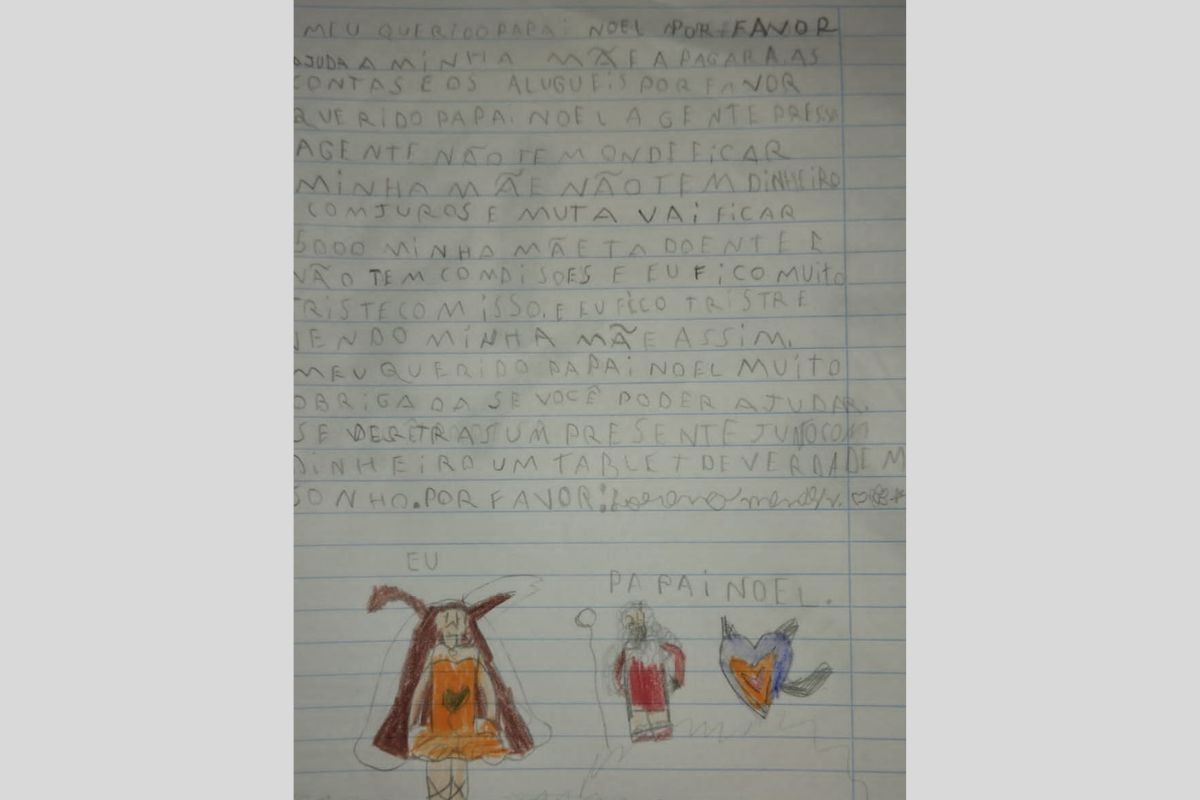 MEU QUERIDO PAPAi NOEL POR FAVOR
AJUDA A MiNHA MÃE A PAGARA AS
CONTAS E OS ALUGUEiS POR FAVOR
QUERIDO PAPAi NOEL A GENTE PRESSA
AGENTE NÃO TEM ONDE FiCAR
MiNHA MÃE NÃO TEM DiNHEiRO
COM JUROS E MUTA VAi FiCAR
5000 MiNHA MÃE TA DOENTE E
NÃO TEM CONDiSOES E EU FiCO MUito
TRiSTE COM iSSO. E EU FiCO TRiSTRE
VENDO MiNHA MÃE ASSiM.
MEU QUERiDO PAPAi NOEL MUiTO
OBRiGADA SE VOCÊ PODER AJUDAR.
SE DER TRAS UM PRESENTE JUNTO COM
DiNHEiRO UM TABLET DE VERDADE M
SONHO. POR FAVOR!
EU
PAPAi NOEL.